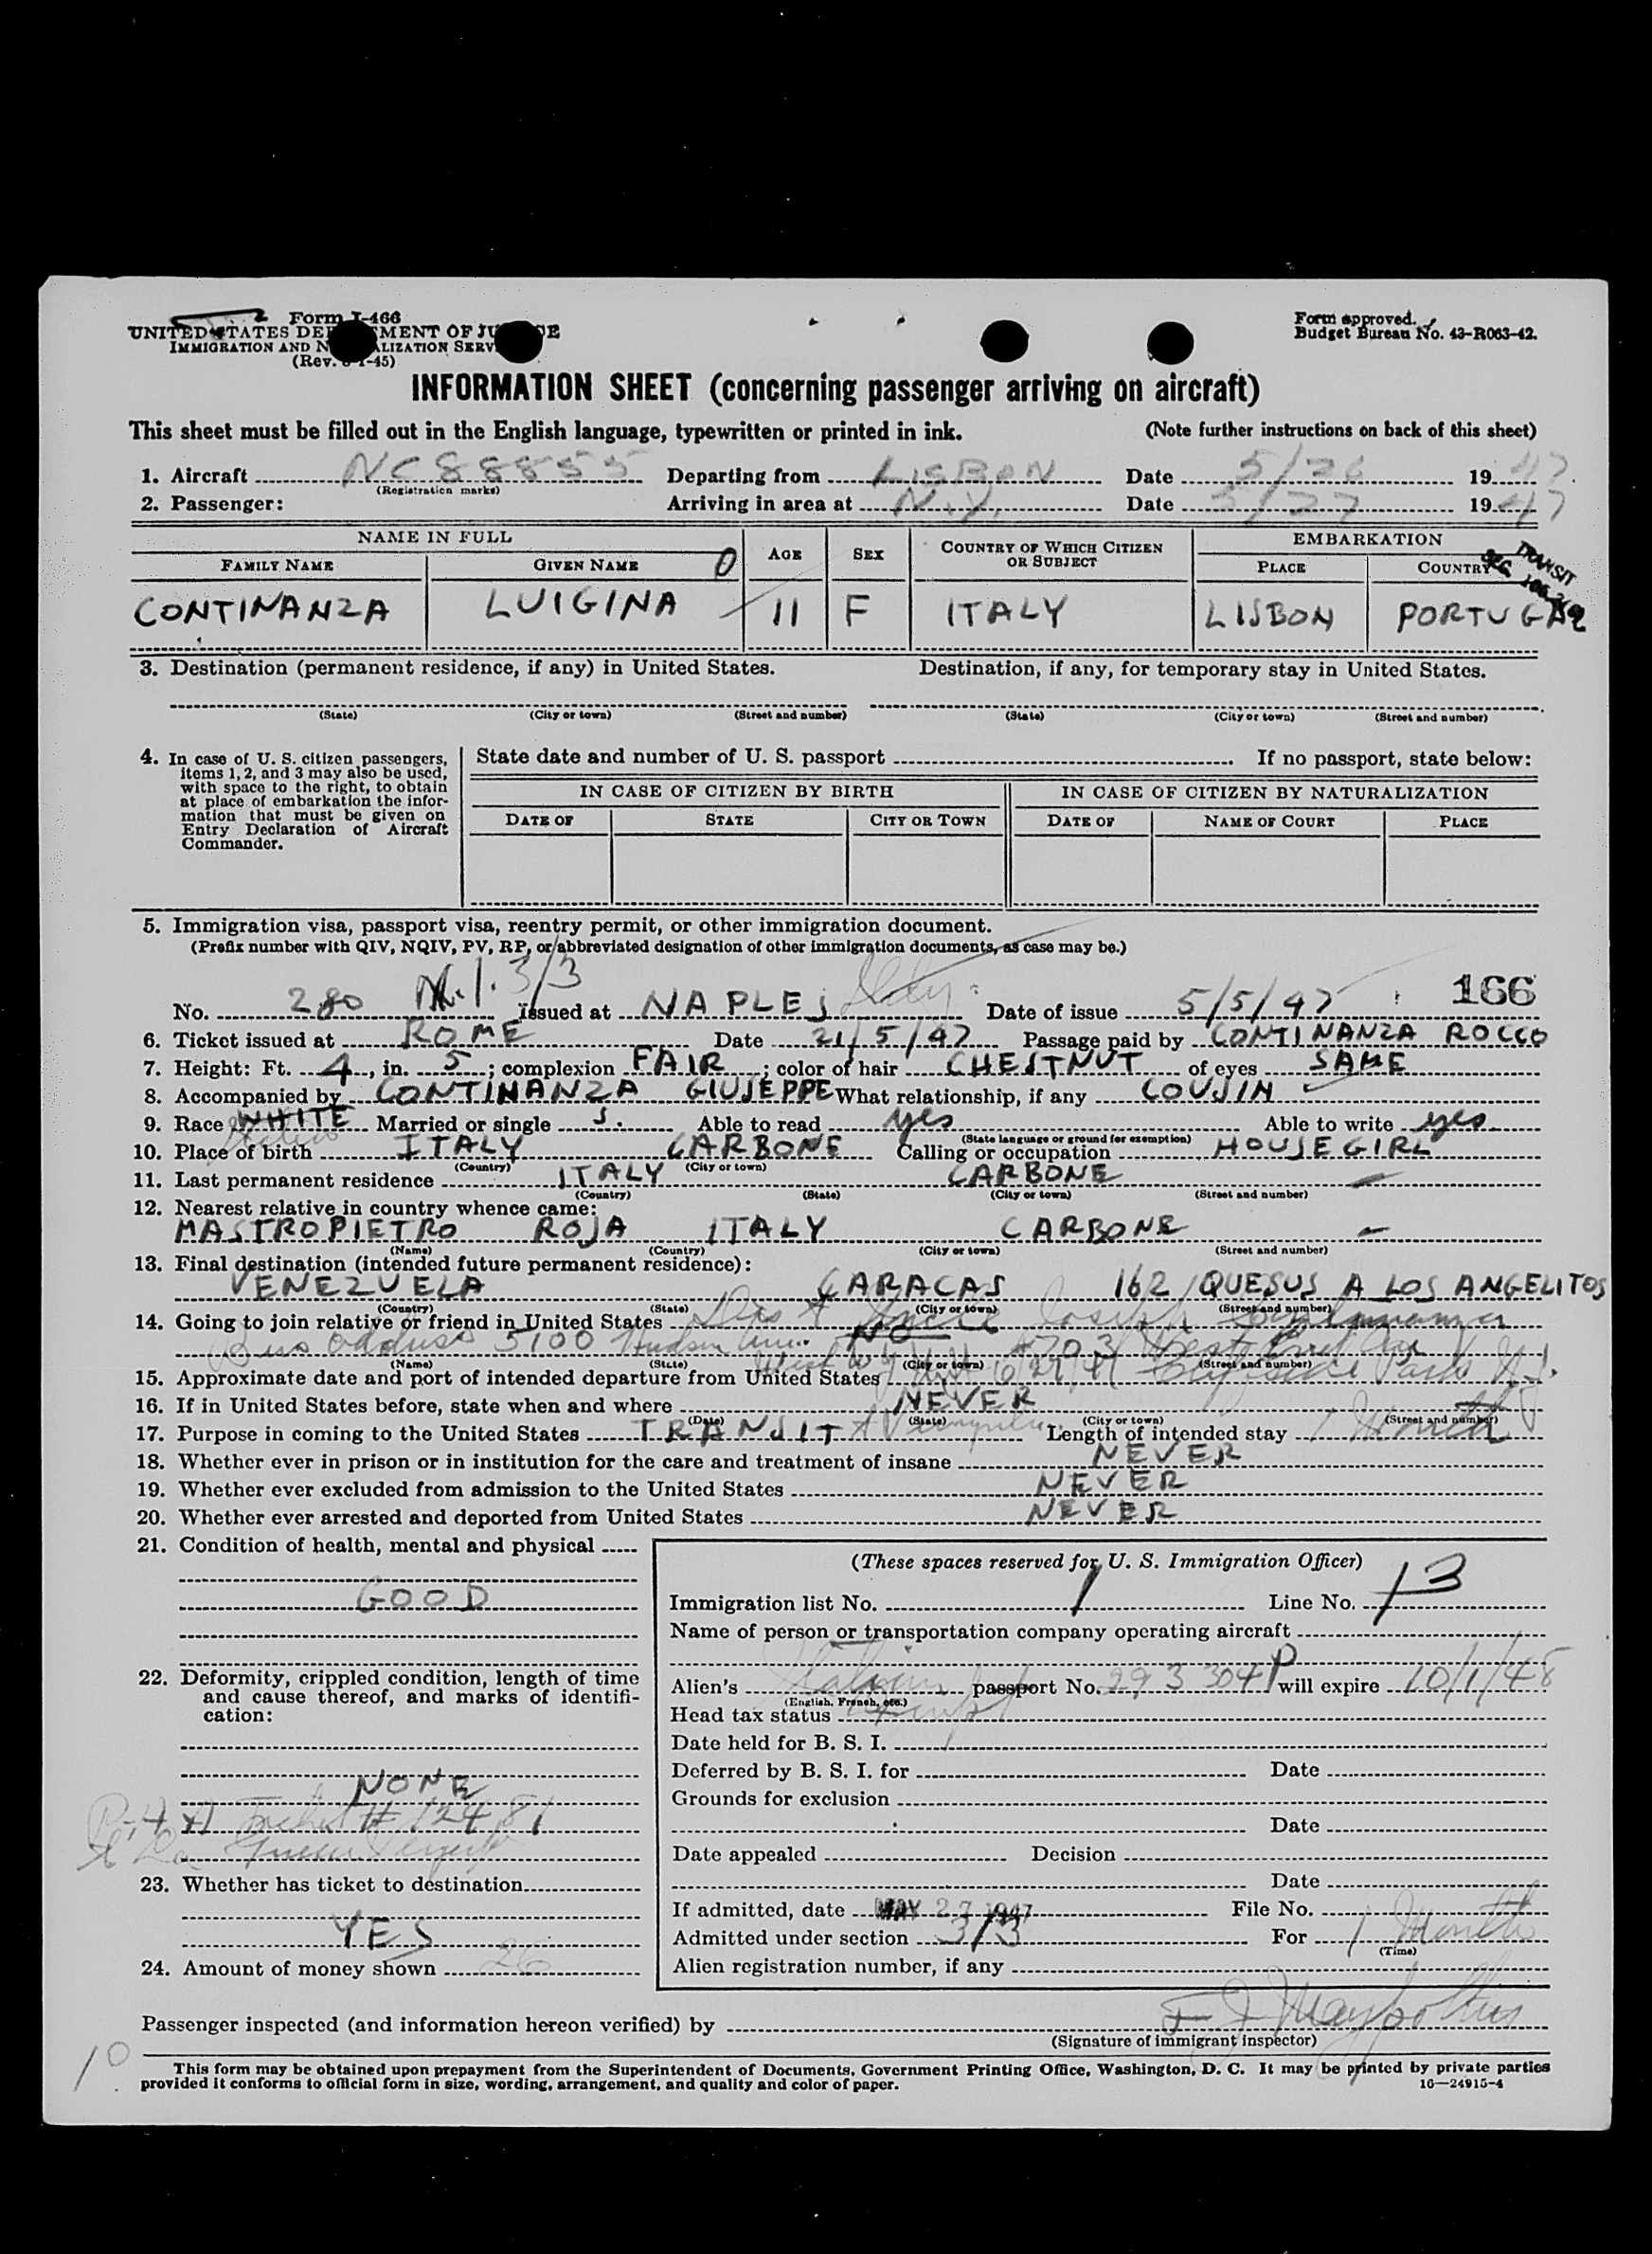 Form I-466
UNITED STATES OF
IMMIGRATION AND
(Rev. -45)
Form approved.
Budget Bureau No. 43-R063-42.
INFORMATION SHEET (concerning passenger arriving on aircraft)
This sheet must be filled out in the English language, typewritten or printed in ink. (Note further instructions on back of this sheet)
1. Aircraft NC88855 Departing from LISBON Date 5/26 1947
(Registration marks)
2. Passenger: Arriving in area at N.Y. Date 5/27 1947
NAME IN FULL AGE SEX COUNTRY OF WHICH CITIZEN OR SUBJECT EMBARKATION
FAMILY NAME GIVEN NAME O PLACE COUNTRY
TRANSIT
CONTINANZA LUIGINA 11 F ITALY LISBON PORTUGAL
3. Destination (permanent residence, if any) in United States. Destination, if any, for temporary stay in United States.
(State) (City or town) (Street and number) (State) (City or town) (Street and number)
4. In case of U. S. citizen passengers,
items 1, 2, and 3 may also be used,
with space to the right, to obtain
at place of embarkation the infor-
mation that must be given on
Entry Declaration of Aircraft
Commander.
State date and number of U. S. passport If no passport, state below:
IN CASE OF CITIZEN BY BIRTH IN CASE OF CITIZEN BY NATURALIZATION
DATE OF STATE CITY OR TOWN DATE OF NAME OF COURT PLACE
5. Immigration visa, passport visa, reentry permit, or other immigration document.
(Prefix number with QIV, NQIV, PV, RP, or abbreviated designation of other immigration documents, as case may be.)
3/3
166
No. 280 Issued at NAPLES Italy Date of issue 5/5/47
6. Ticket issued at ROME Date 21/5/47 Passage paid by CONTINANZA ROCCO
7. Height: Ft. 4, in. 5; complexion FAIR; color of hair CHESTNUT of eyes SAME
8. Accompanied by CONTINANZA GIUSEPPE What relationship, if any COUSIN
9. Race WHITE Married or single S. Able to read yes Able to write yes
(State language or ground for exemption)
10. Place of birth ITALY CARBONE Calling or occupation HOUSEGIRL
(Country) (City or town)
11. Last permanent residence ITALY CARBONE
(Country) (State) (City or town) (Street and number)
12. Nearest relative in country whence came:
MASTROPIETRO ROSA ITALY CARBONE
(Name) (Country) (City or town) (Street and number)
13. Final destination (intended future permanent residence):
VENEZUELA CARACAS 162 QUESUS A LOS ANGELITOS
(Country) (State) (City or town) (Street and number)
14. Going to join relative or friend in United States Uncle Joseph
NO 5100 Hudson Ave.
(Name) (State) (City or town) (Street and number)
15. Approximate date and port of intended departure from United States
16. If in United States before, state when and where NEVER
(Date) (State) (City or town) (Street and number)
17. Purpose in coming to the United States TRANSIT Length of intended stay 1 Month
18. Whether ever in prison or in institution for the care and treatment of insane NEVER
19. Whether ever excluded from admission to the United States NEVER
20. Whether ever arrested and deported from United States NEVER
21. Condition of health, mental and physical
GOOD
22. Deformity, crippled condition, length of time
and cause thereof, and marks of identifi-
cation:
NONE
Ticket # 12481
23. Whether has ticket to destination
YES
24. Amount of money shown 26
(These spaces reserved for U. S. Immigration Officer)
Immigration list No. 1 Line No. 13
Name of person or transportation company operating aircraft
Alien's Italian passport No. 293304 P will expire 10/1/48
(English, French, etc.)
Head tax status Exempt
Date held for B. S. I.
Deferred by B. S. I. for Date
Grounds for exclusion
Date
Date appealed Decision
Date
If admitted, date MAY 27 1947 File No.
Admitted under section 3/3 For 1 Month
(Time)
Alien registration number, if any
Passenger inspected (and information hereon verified) by
(Signature of immigrant inspector)
10
This form may be obtained upon prepayment from the Superintendent of Documents, Government Printing Office, Washington, D. C. It may be printed by private parties
provided it conforms to official form in size, wording, arrangement, and quality and color of paper. 16—24915-4